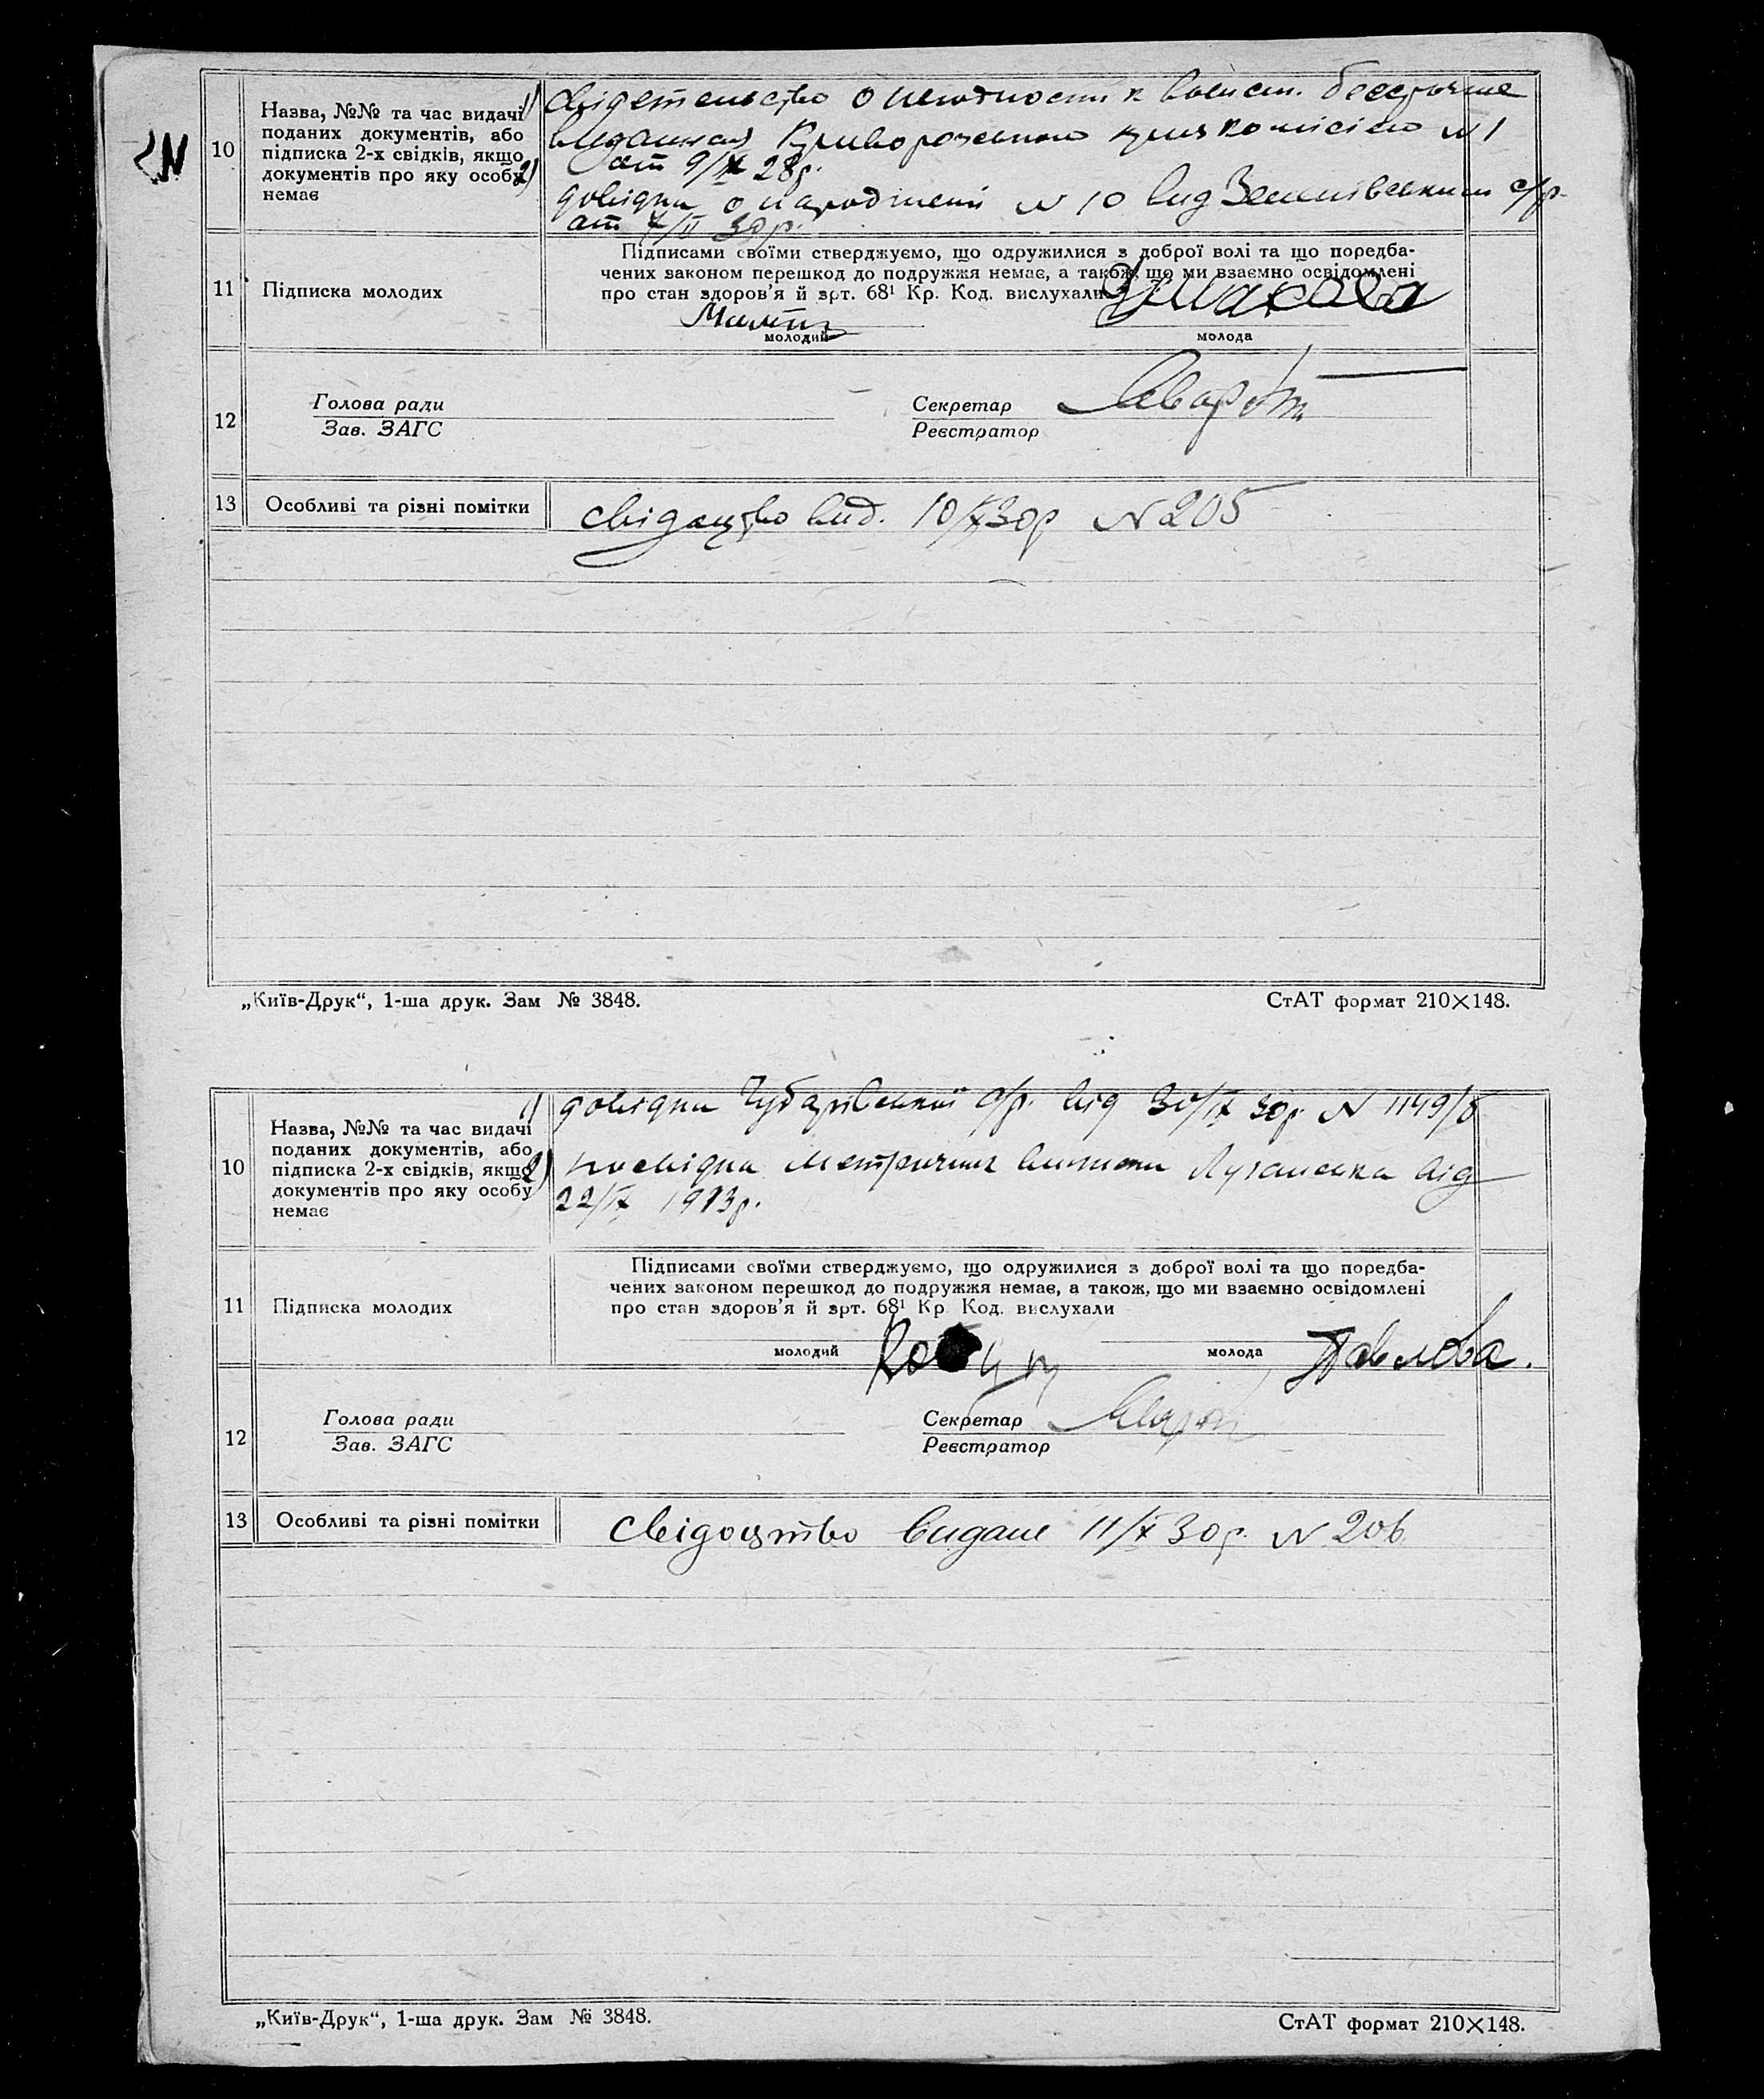 10
Назва, №№ та час видачі
поданих документів, або
підписка 2-х свідків, якщо
документів про яку особу
немає
1) свідетельство о негодности к воєнсл.
видания Криворожською комісією N 1
от 9/IX 28р.
2) довідка о народженні N 10 вид с/р.
от 7/II 30р.
11
Підписка молодих
Підписами своїми стверджуємо, що одружилися з доброї волі та що поредба-
чених законом перешкод до подружжя немає, а також, що ми взаємно освідомлені
про стан здоров'я й зрт. 68¹ Кр. Код. вислухали
Ушакова
молодий
молода
12
Голова ради
Зав. ЗАГС
Секретар
Реєстратор
13
Особливі та різні помітки
свідоцтво вид. 10/X 30р N 205
„Київ-Друк“, 1-ша друк. Зам № 3848.
СтАТ формат 210×148.
10
Назва, №№ та час видачі
поданих документів, або
підписка 2-х свідків, якщо
документів про яку особу
немає
1) довідка Чубарівської с/р. від 30/IX 30р. N 1149/8
2) посвідка метричних виписки Луганська від
22/IX 1913р.
11
Підписка молодих
Підписами своїми стверджуємо, що одружилися з доброї волі та що поредба-
чених законом перешкод до подружжя немає, а також, що ми взаємно освідомлені
про стан здоров'я й зрт. 68¹ Кр. Код. вислухали
молодий
молода
Павлова.
12
Голова ради
Зав. ЗАГС
Секретар
Реєстратор
13
Особливі та різні помітки
свідоцтво видане 11/X 30р. N 206.
„Київ-Друк“, 1-ша друк. Зам № 3848.
СтАТ формат 210×148.